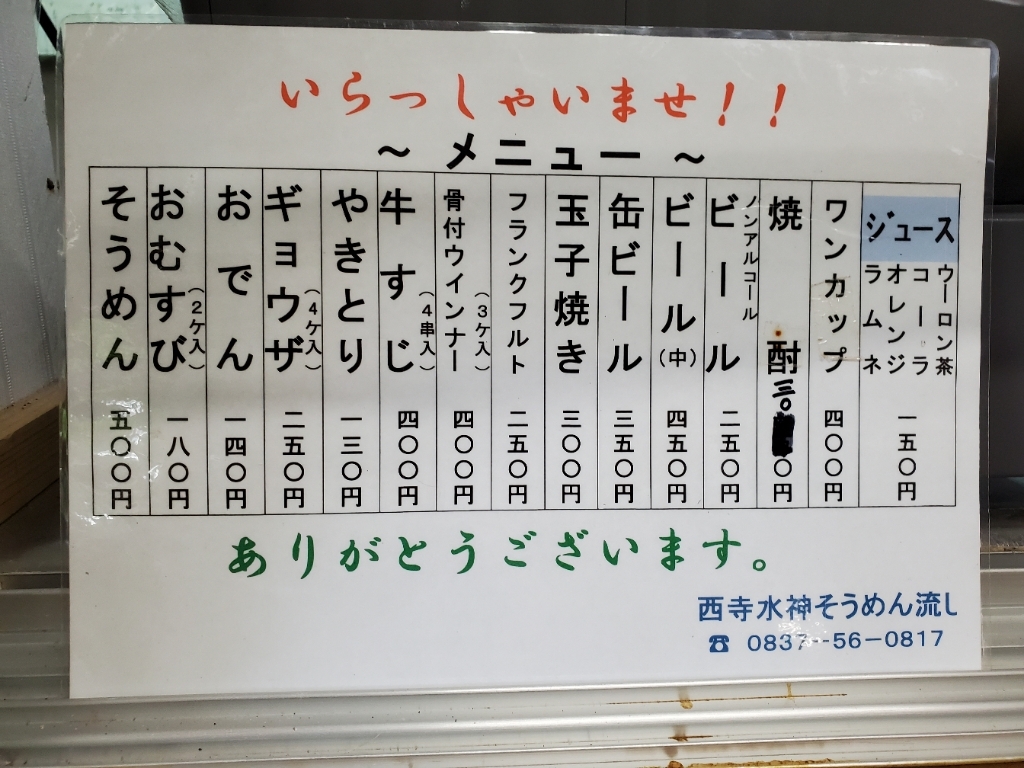 いらっしゃいませ！！
～ メニュー ～
ジュース
ウーロン茶
コーラ
オレンジ
ラムネ
一五〇円
ワンカップ 四〇〇円
焼酎 三〇〇円
ノンアルコール
ビール 二五〇円
ビール（中） 四五〇円
缶ビール 三五〇円
玉子焼き 三〇〇円
フランクフルト 二五〇円
骨付ウインナー（３ケ入） 四〇〇円
牛すじ（４串入） 四〇〇円
やきとり 一三〇円
ギョウザ（４ケ入） 二五〇円
おでん 一四〇円
おむすび（２ケ入） 一八〇円
そうめん 五〇〇円
ありがとうございます。
西寺水神そうめん流し
☎ 0837-56-0817